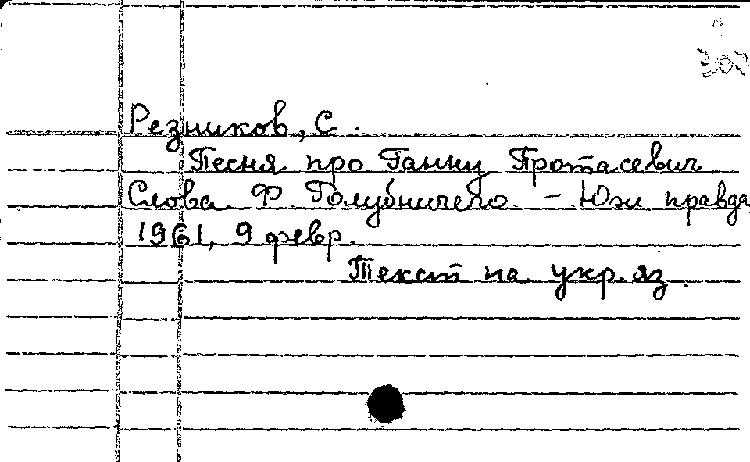 Резников, С.
Песня про Ганну Протасевич
Слова Ф. Голубничего. – Южн правда
1961, 9 февр.
Текст на укр. яз.